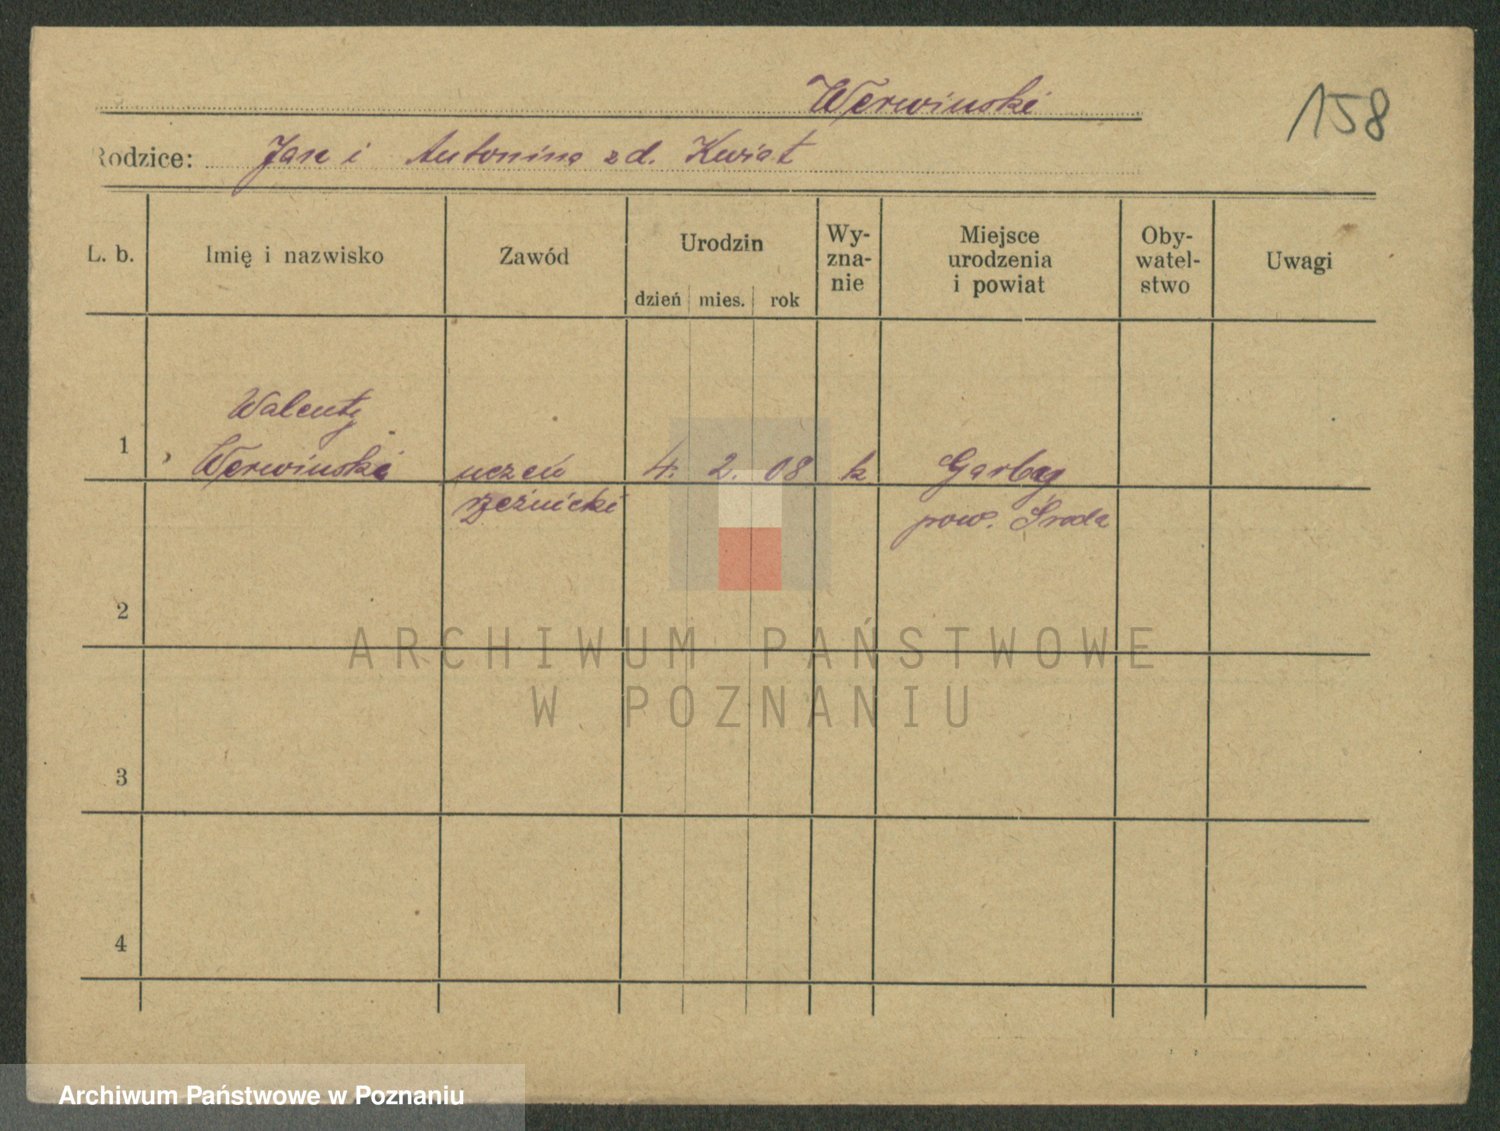 Werwinski
158
Rodzice: Jan i Antonina zd. Kwiat
L. b. Imię i nazwisko Zawód Urodzin dzień mies. rok Wy-zna-nie Miejsce urodzenia i powiat Oby-watel-stwo Uwagi
Walenty
1 Werwinski uczeń 4. 2. 08 k. Garby
rzeźnicki pow. Środa
2
ARCHIWUM PAŃSTWOWE
W POZNANIU
3
4
Archiwum Państwowe w Poznaniu